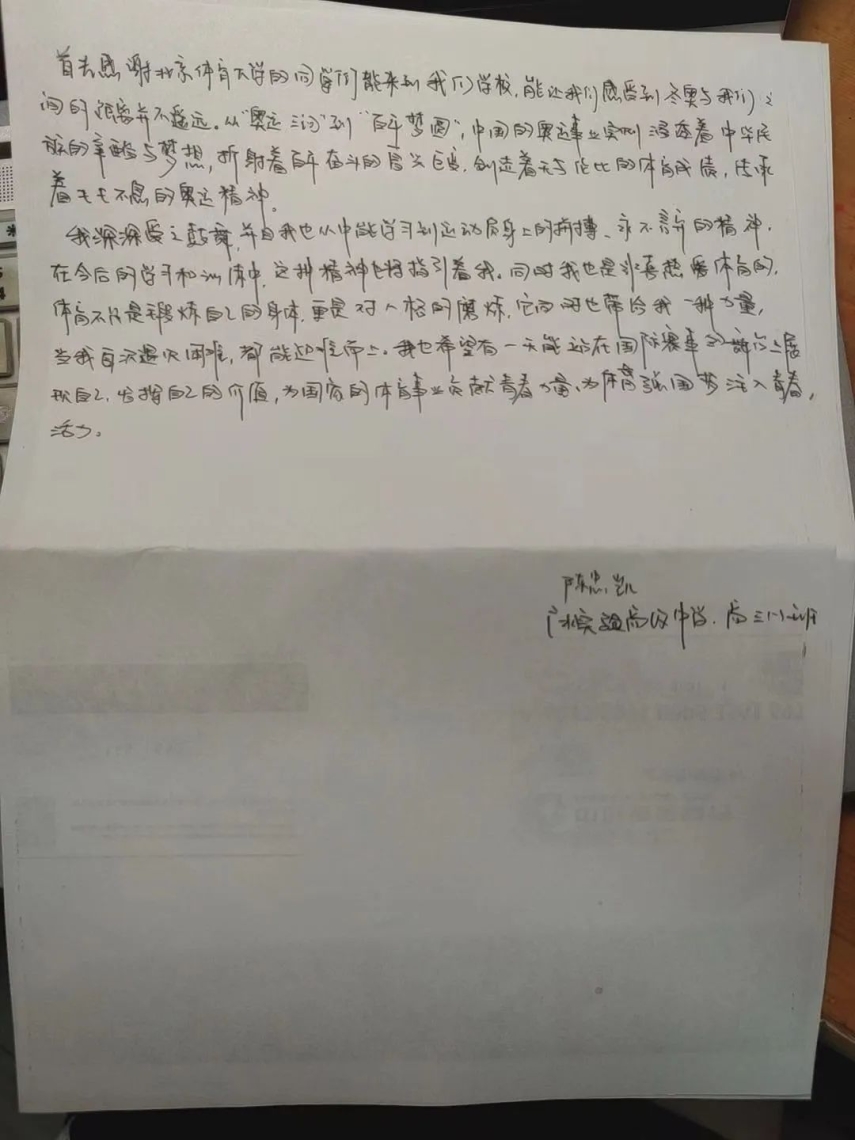 首先感谢北京体育大学的同学们能来到我们学校,能让我们感受到冬奥与我们之
间的距离并不遥远。从"奥运三问"到"百年梦圆",中国的奥运事业实则浸透着中华民
族的辛酸与梦想,折射着百年奋斗的巨变,创造着无与伦比的体育成绩,传承
着生生不息的奥运精神。
我深深受之鼓舞,并且我也从中能学习到运动员身上的拼搏、永不言弃的精神.
在今后的学习和训练中,这种精神也将指引着我。同时我也是非常热爱体育的,
体育不仅是锻炼自己的身体,更是对人格的磨炼,它同时也带给我一种力量,
当我每次遇见困难,都能迎难而上。我也希望有一天能站在国际赛事的舞台上展
现自己,发挥自己的价值,为国家的体育事业贡献青春力量,为体育强国梦注入青春,
活力。
陈忠凯
实验高级中学.高三